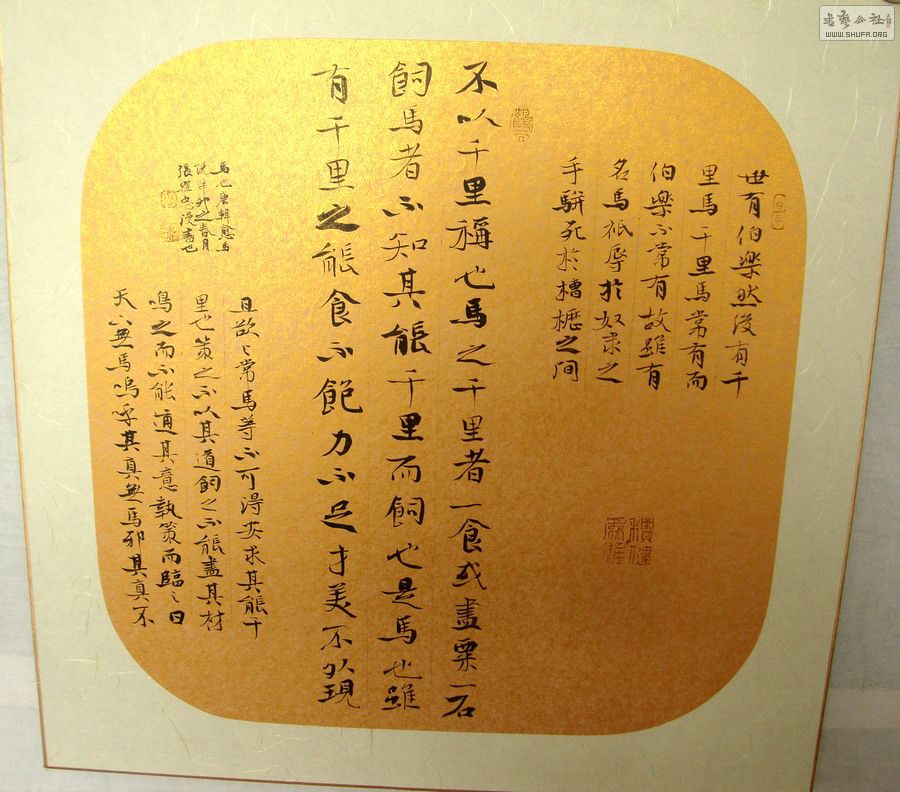 世有伯樂然後有千
里馬千里馬常有而
伯樂不常有故雖有
名馬祇辱於奴隶之
手駢死於槽櫪之間
不以千里稱也馬之千里者一食或盡粟一石
飼馬者不知其能千里而飼也是馬也雖
有千里之能食不飽力不足才美不外現
且欲與常馬等不可得安求其能千
里也策之不以其道飼之不能盡其材
鳴之而不能通其意執策而臨之曰
天下無馬嗚呼其真無馬邪其真不
馬也唐韓愈馬
说辛卯之春月
張 書也
書藝公社
WWW.SHUFA.ORG